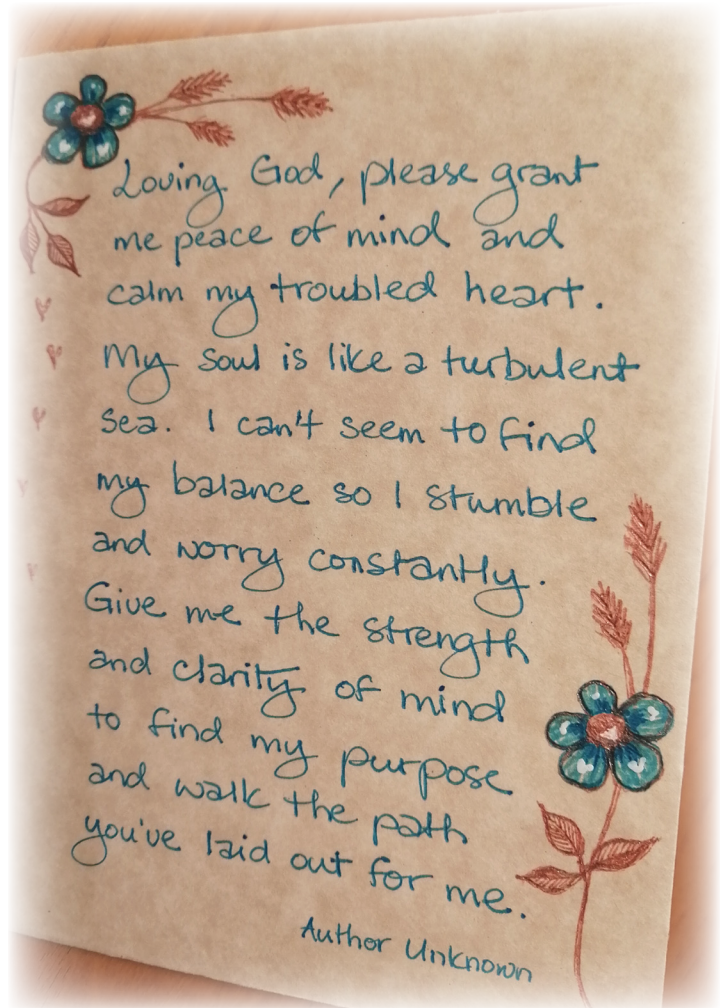 Loving God, please grant
me peace of mind and
calm my troubled heart.
My soul is like a turbulent
sea. I can't seem to find
my balance so I stumble
and worry constantly.
Give me the strength
and clarity of mind
to find my purpose
and walk the path
you've laid out for me.
Author Unknown